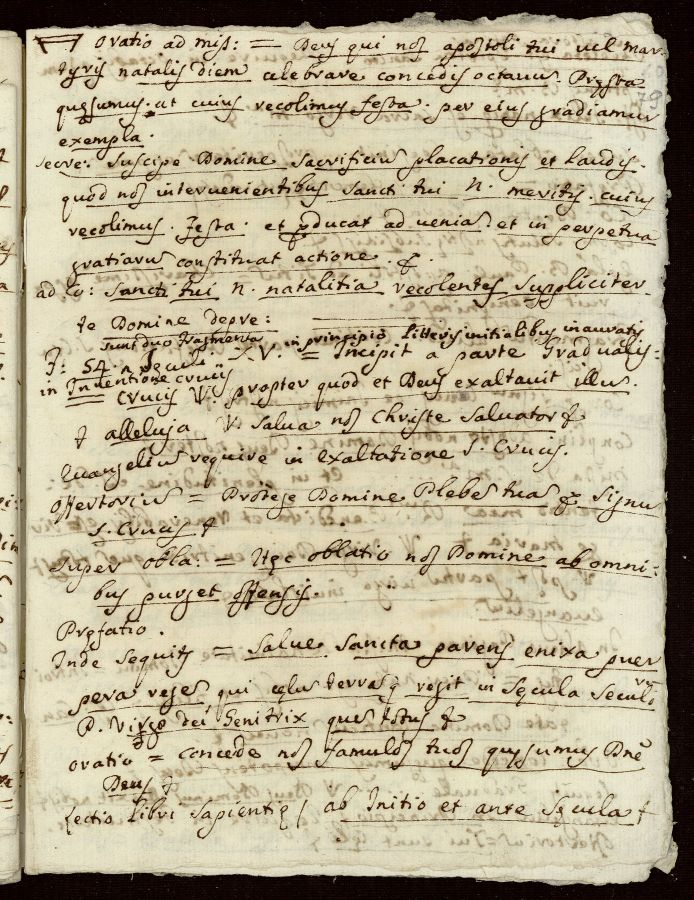 oratio ad miss: = Deus qui nos apostoli tui vel mar-
tyris natalis diem celebrare concedis octavū Pręsta
quęsumus. ut cuius recolimus festa. per eius gradiamur
exempla.
secre: Suscipe Domine sacrificiū placationis et laudis.
quod nos intervenientibus Sancti tui N. meritis. cuius
recolimus. festa. et pducat ad veniā et in perpetua
gratiarū constituat actione. &.
ad Co: Sancti tui N. natalitia recolentes suppliciter
te Domine depre:
sunt duo fragmenta in principio litteris initialibus inauratis
F: 54. XV. = Incipit a parte Gradualis:
in Inventione crucis
Crucis V. propter quod et Deus exaltavit illū.
& alleluja V. Salva nos Christe Salvator &
Evangeliū require in exaltatione S. Crucis.
offertoriū = Protege Domine Plebē tuā & Signū
S. Crucis &
Super obla: = Hęc oblatio nos Domine ab omni-
bus purget offensis.
Pręfatio.
Inde sequitʒ = Salve Sancta parens enixa puer
pera regē qui cęlū terrāq regit in sęcula seculoʒ
P. Virgo dei Genitrix quē totus &
oratio = concede nos famulos tuos quęsumus Dnē
Deus &
Lectio libri Sapientię / ab Initio et ante Sęcula &